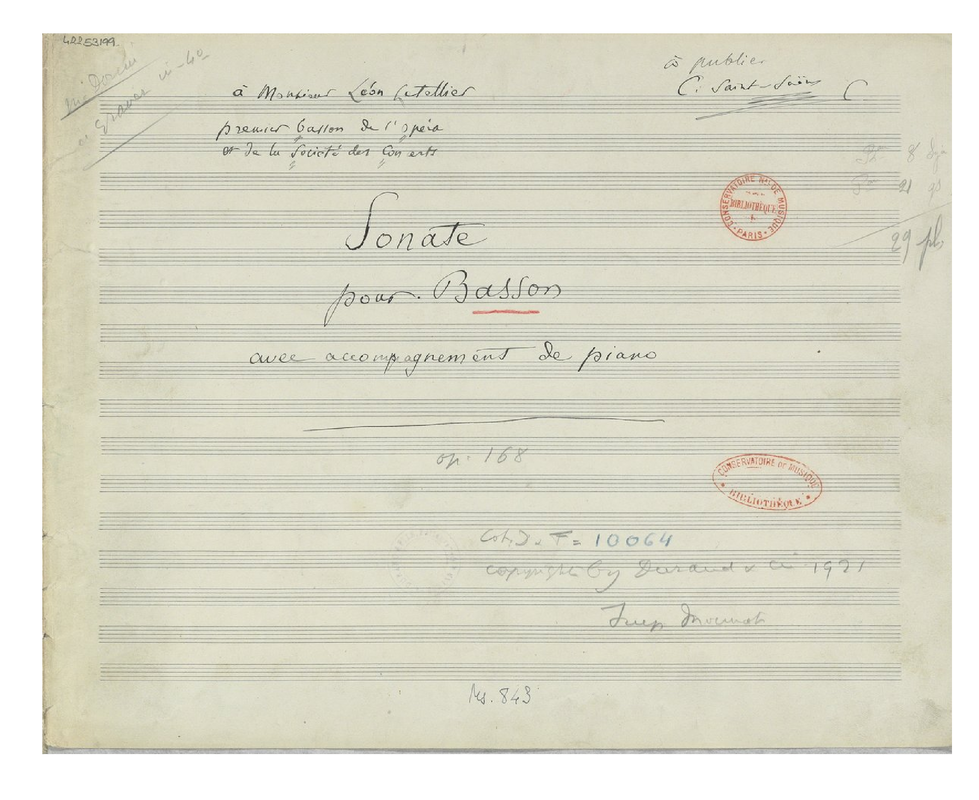 42253199
à graver in-4º
à publier
C. Saint-Saëns
à Monsieur Léon Letellier
premier basson de l'opéra
et de la Société des Concerts
8
21
29 pl.
CONSERVATOIRE Nal DE MUSIQUE
BIBLIOTHÈQUE
PARIS
Sonate
pour Basson
avec accompagnement de piano
op. 168
CONSERVATOIRE DE MUSIQUE
BIBLIOTHÈQUE
F = 10064
copyright by Durand & Cie 1921
Ms. 843